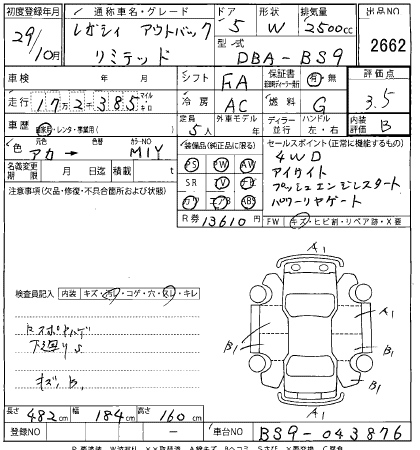 初度登録年月 通称車名・グレード ドア 形状 排気量 出品NO
29/10月 レガシィ アウトバック リミテッド 5 W 2500cc 2662
型式 DBA-BS9
車検 年 月 シフト FA 保証書 有 無 評価点 3.5
走行 17万2千385 マイル キロ 冷房 AC 燃料 G
車歴 自家用・レンタ・事業用( ) 定員 5人 外車モデル 年 ディーラー 並行 ハンドル 左・右 内装評価 B
色 元色 アカ→ 色替 カラーNO M1Y 装備品(純正品に限る) セールスポイント(正常に機能するもの)
名義変更期限 月 日迄 月 PS PW AW 4WD
SR TV ナビ アイサイト
注意事項(欠品・修復・不具合箇所および状態) カワ エアB ABS プッシュエンジンスタート
パワーリヤゲート
R券 13610円 FW キズ・ヒビ割・リペア跡・X要
検査員記入 内装 キズ・汚レ・コゲ・穴・スレ・キレ
A1
A1
B1
B1
A1
下廻りS
キズ、B、
長さ 482cm 幅 184cm 高さ 160cm
登録NO ー 車台NO BS9-043876